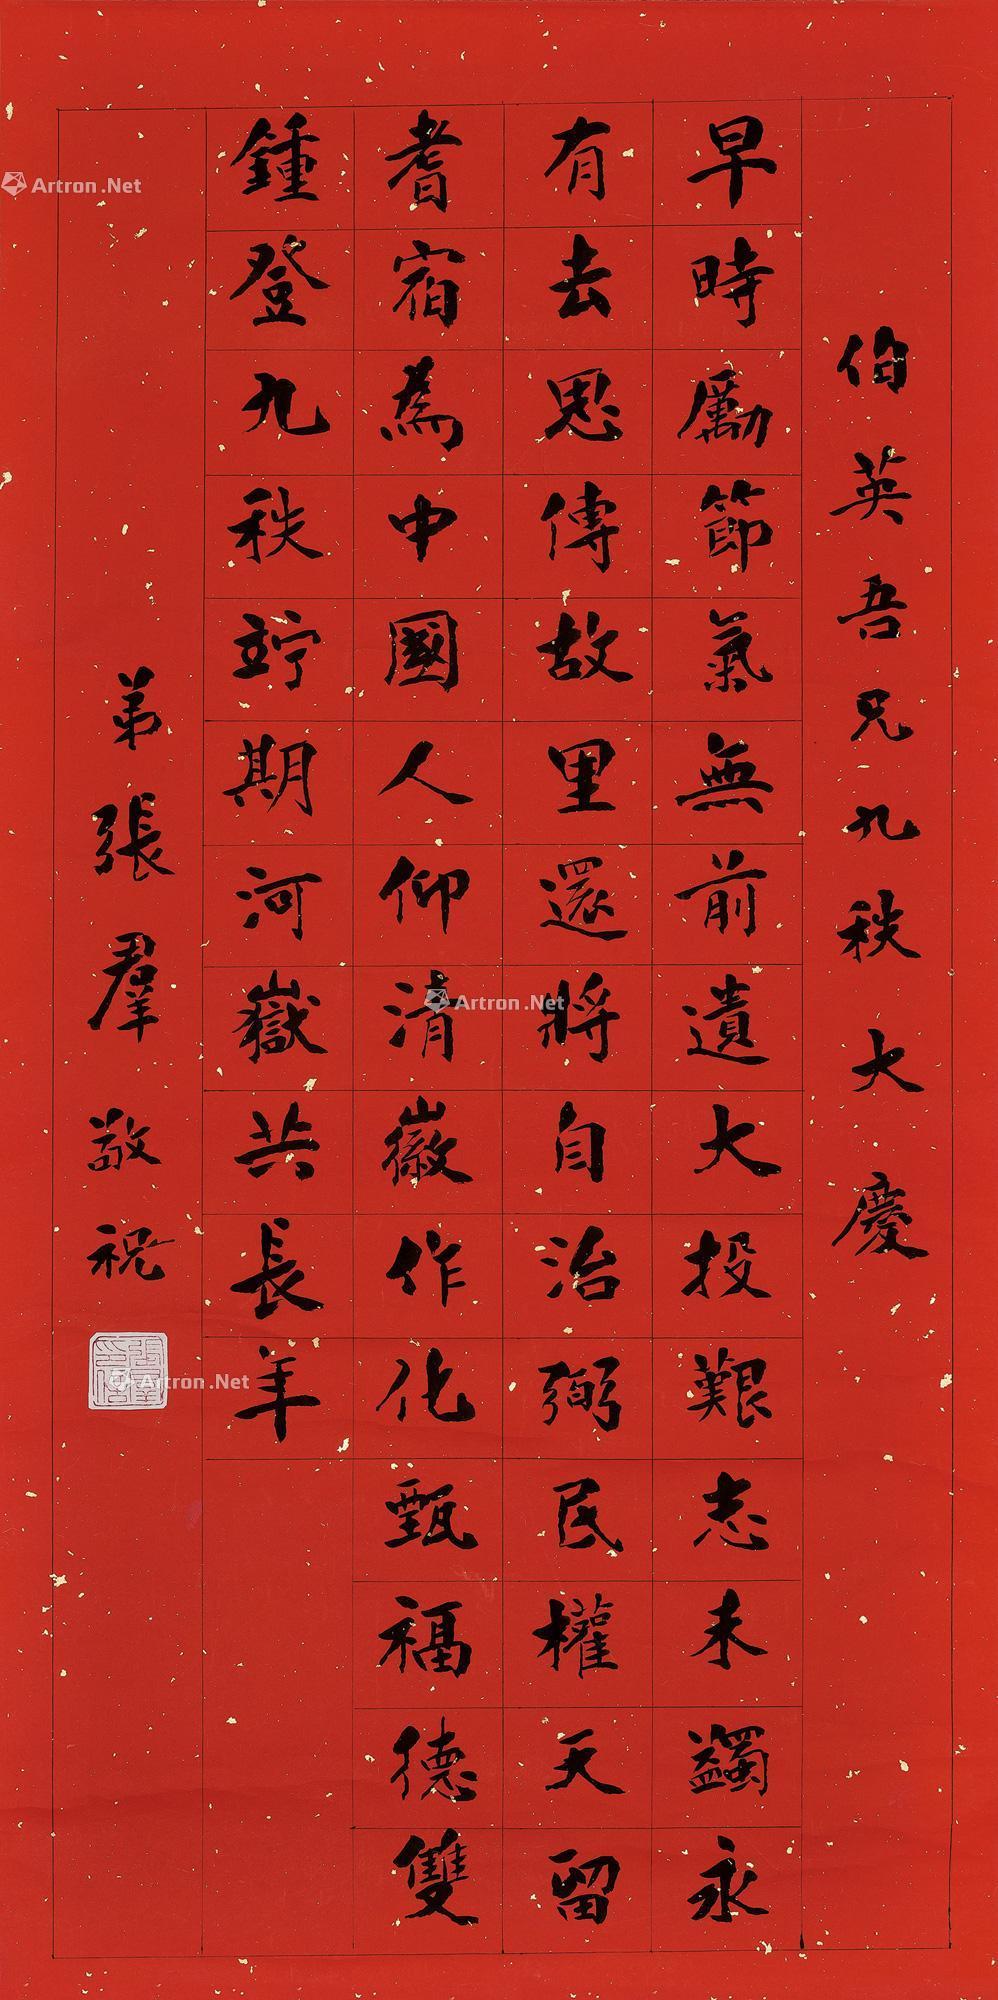 伯英吾兄九秩大慶
早時勵節氣無前遺大投艱志未蠲永
有去思傳故里還將自治弼民權天留
耆宿為中國人仰清徽作化甄福德雙
鍾登九秩竚期河嶽共長年
弟張羣敬祝
Artron.Net
Artron.Net
Artron.Net